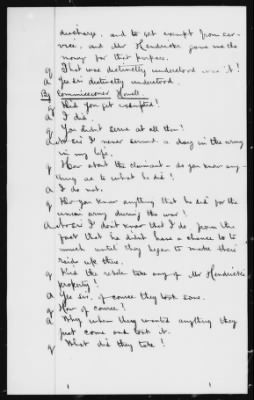 discharge, and to get exempt from ser-
vice, and Mr Hendricks gave me the
money for that purpose.
Q That was distinctly understood was it?
A Yes sir distinctly understood.
By Commissioner Howell.
Q Did you get exempted?
A I did.
Q You didnt serve at all then?
A No sir I never served a day in the army
in my life.
Q How about the claimant - do you know any-
thing as to what he did?
A I do not.
Q Nor you know anything that he did for the
union army during the war?
A No sir I dont know that I do from the
fact that he didnt have a chance to do
much until they began to make their
raids up there.
Q Did the rebels take any of Mr Hendricks
property?
A Yes sir, of course they took some.
Q How of course?
A Why when they wanted anything they
just come and took it.
Q What did they take?